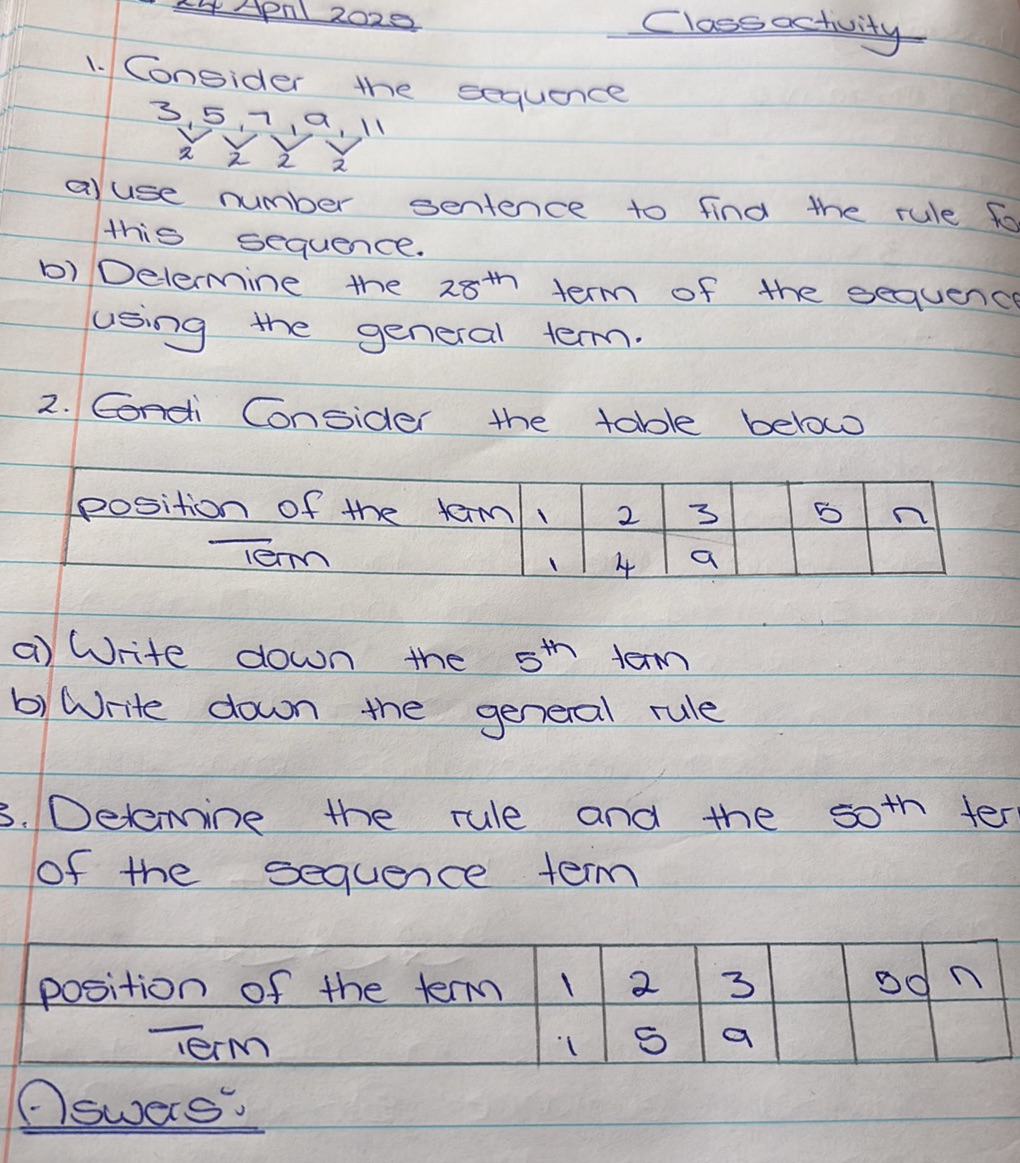 24 April 2025 Class activity
1. Consider the sequence
3, 5, 7, 9, 11
2 2 2 2
a) use number sentence to find the rule fo
this sequence.
b) Determine the 28th term of the sequence
using the general term.
2. Condi Consider the table below
position of the term 1 2 3 5 n
Term 1 4 9
a) Write down the 5th term
b) Write down the general rule
3. Determine the rule and the 50th ter
of the sequence term
position of the term 1 2 3 50 n
Term 1 5 9
Aswers: